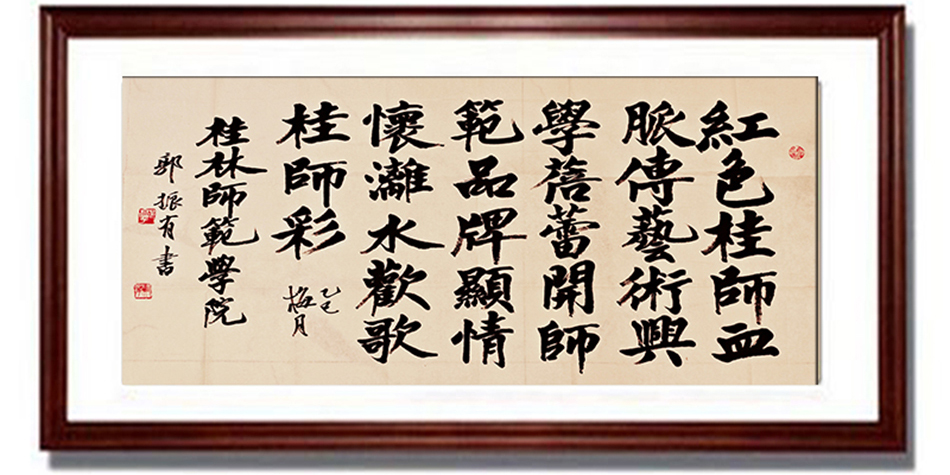 紅色桂師血
脈傳藝術興
學蓓蕾開師
範品牌顯情
懷灕水歡歌
桂師彩
乙巳
梅月
桂林師範學院
郭振有書